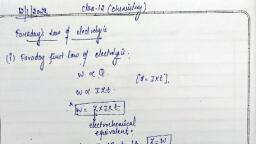 12/1/2022
Class-12 (chemistry)
Faraday's Law of electrolysis
(i) Faraday first law of electrolysis:
w ∝ Q [Q = I×t]
w ∝ I×t
* w = Z×I×t
electrochemical
equivalent.
Z = w